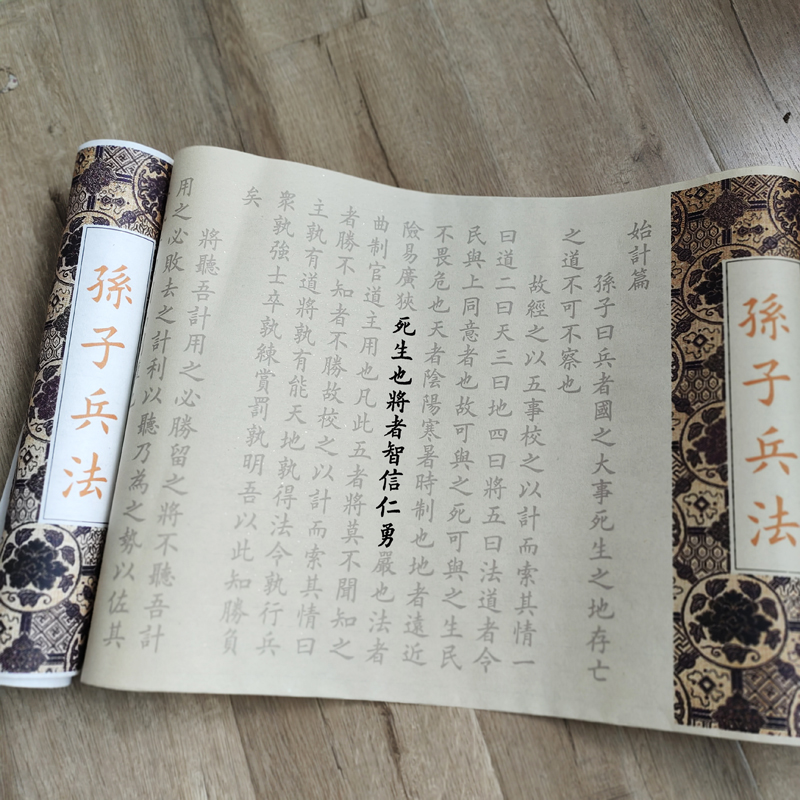 孫子兵法
始計篇
孫子曰兵者國之大事死生之地存亡
之道不可不察也
故經之以五事校之以計而索其情一
曰道二曰天三曰地四曰將五曰法道者令
民與上同意者也故可與之死可與之生民
不畏危也天者陰陽寒暑時制也地者遠近
險易廣狹死生也將者智信仁勇嚴也法者
曲制官道主用也凡此五者將莫不聞知之
者勝不知者不勝故校之以計而索其情曰
主孰有道將孰有能天地孰得法令孰行兵
眾孰強士卒孰練賞罰孰明吾以此知勝負
矣
將聽吾計用之必勝留之將不聽吾計
用之必敗去之計利以聽乃為之勢以佐其
孫子兵法